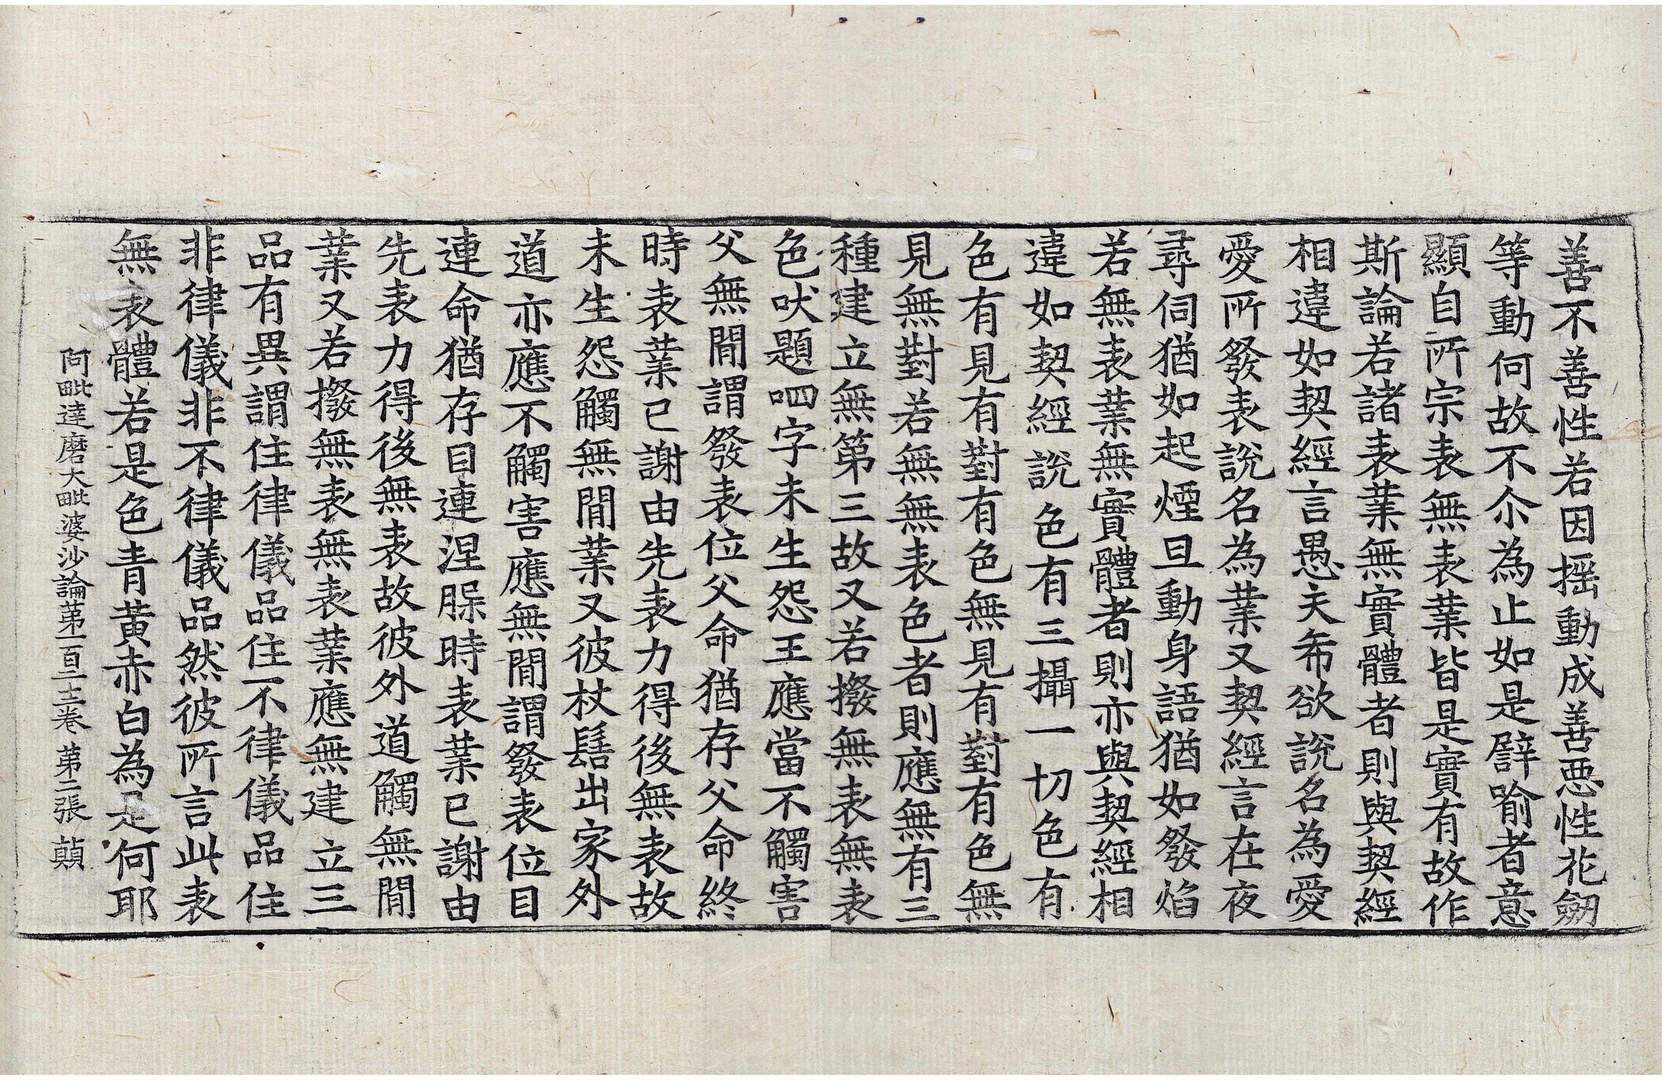 善不善性若因摇動成善惡性花劒
等動何故不尒為止如是譬喻者意
顯自所宗表無表業皆是實有故作
斯論若諸表業無實體者則與契經
相違如契經言愚夫希欲說名為愛
愛所發表說名為業又契經言在夜
尋伺猶如起煙旦動身語猶如發焰
若無表業無實體者則亦與契經相
違如契經說色有三攝一切色有
色有見有對有色無見有對有色無
見無對若無無表色者則應無有三
種建立無第三故又若撥無表無表
色吠題呬字未生怨王應當不觸害
父無間謂發表位父命猶存父命終
時表業已謝由先表力得後無表故
未生怨觸無間業又彼杖髻出家外
道亦應不觸害應無間謂發表位目
連命猶存目連涅槃時表業已謝由
先表力得後無表故彼外道觸無間
業又若撥無表無表業應無建立三
品有異謂住律儀品住不律儀品住
非律儀非不律儀品然彼所言此表
無表體若是色青黃赤白為是何耶
阿毗達磨大毗婆沙論第一百二十二卷 第二張 顛